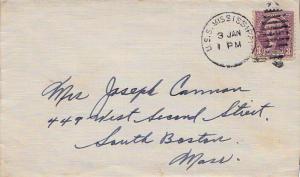 U.S.S. MISSISSIPPI
3 JAN
1 PM
Mrs Joseph Cannon
449 West Second Street.
South Boston.
Mass.